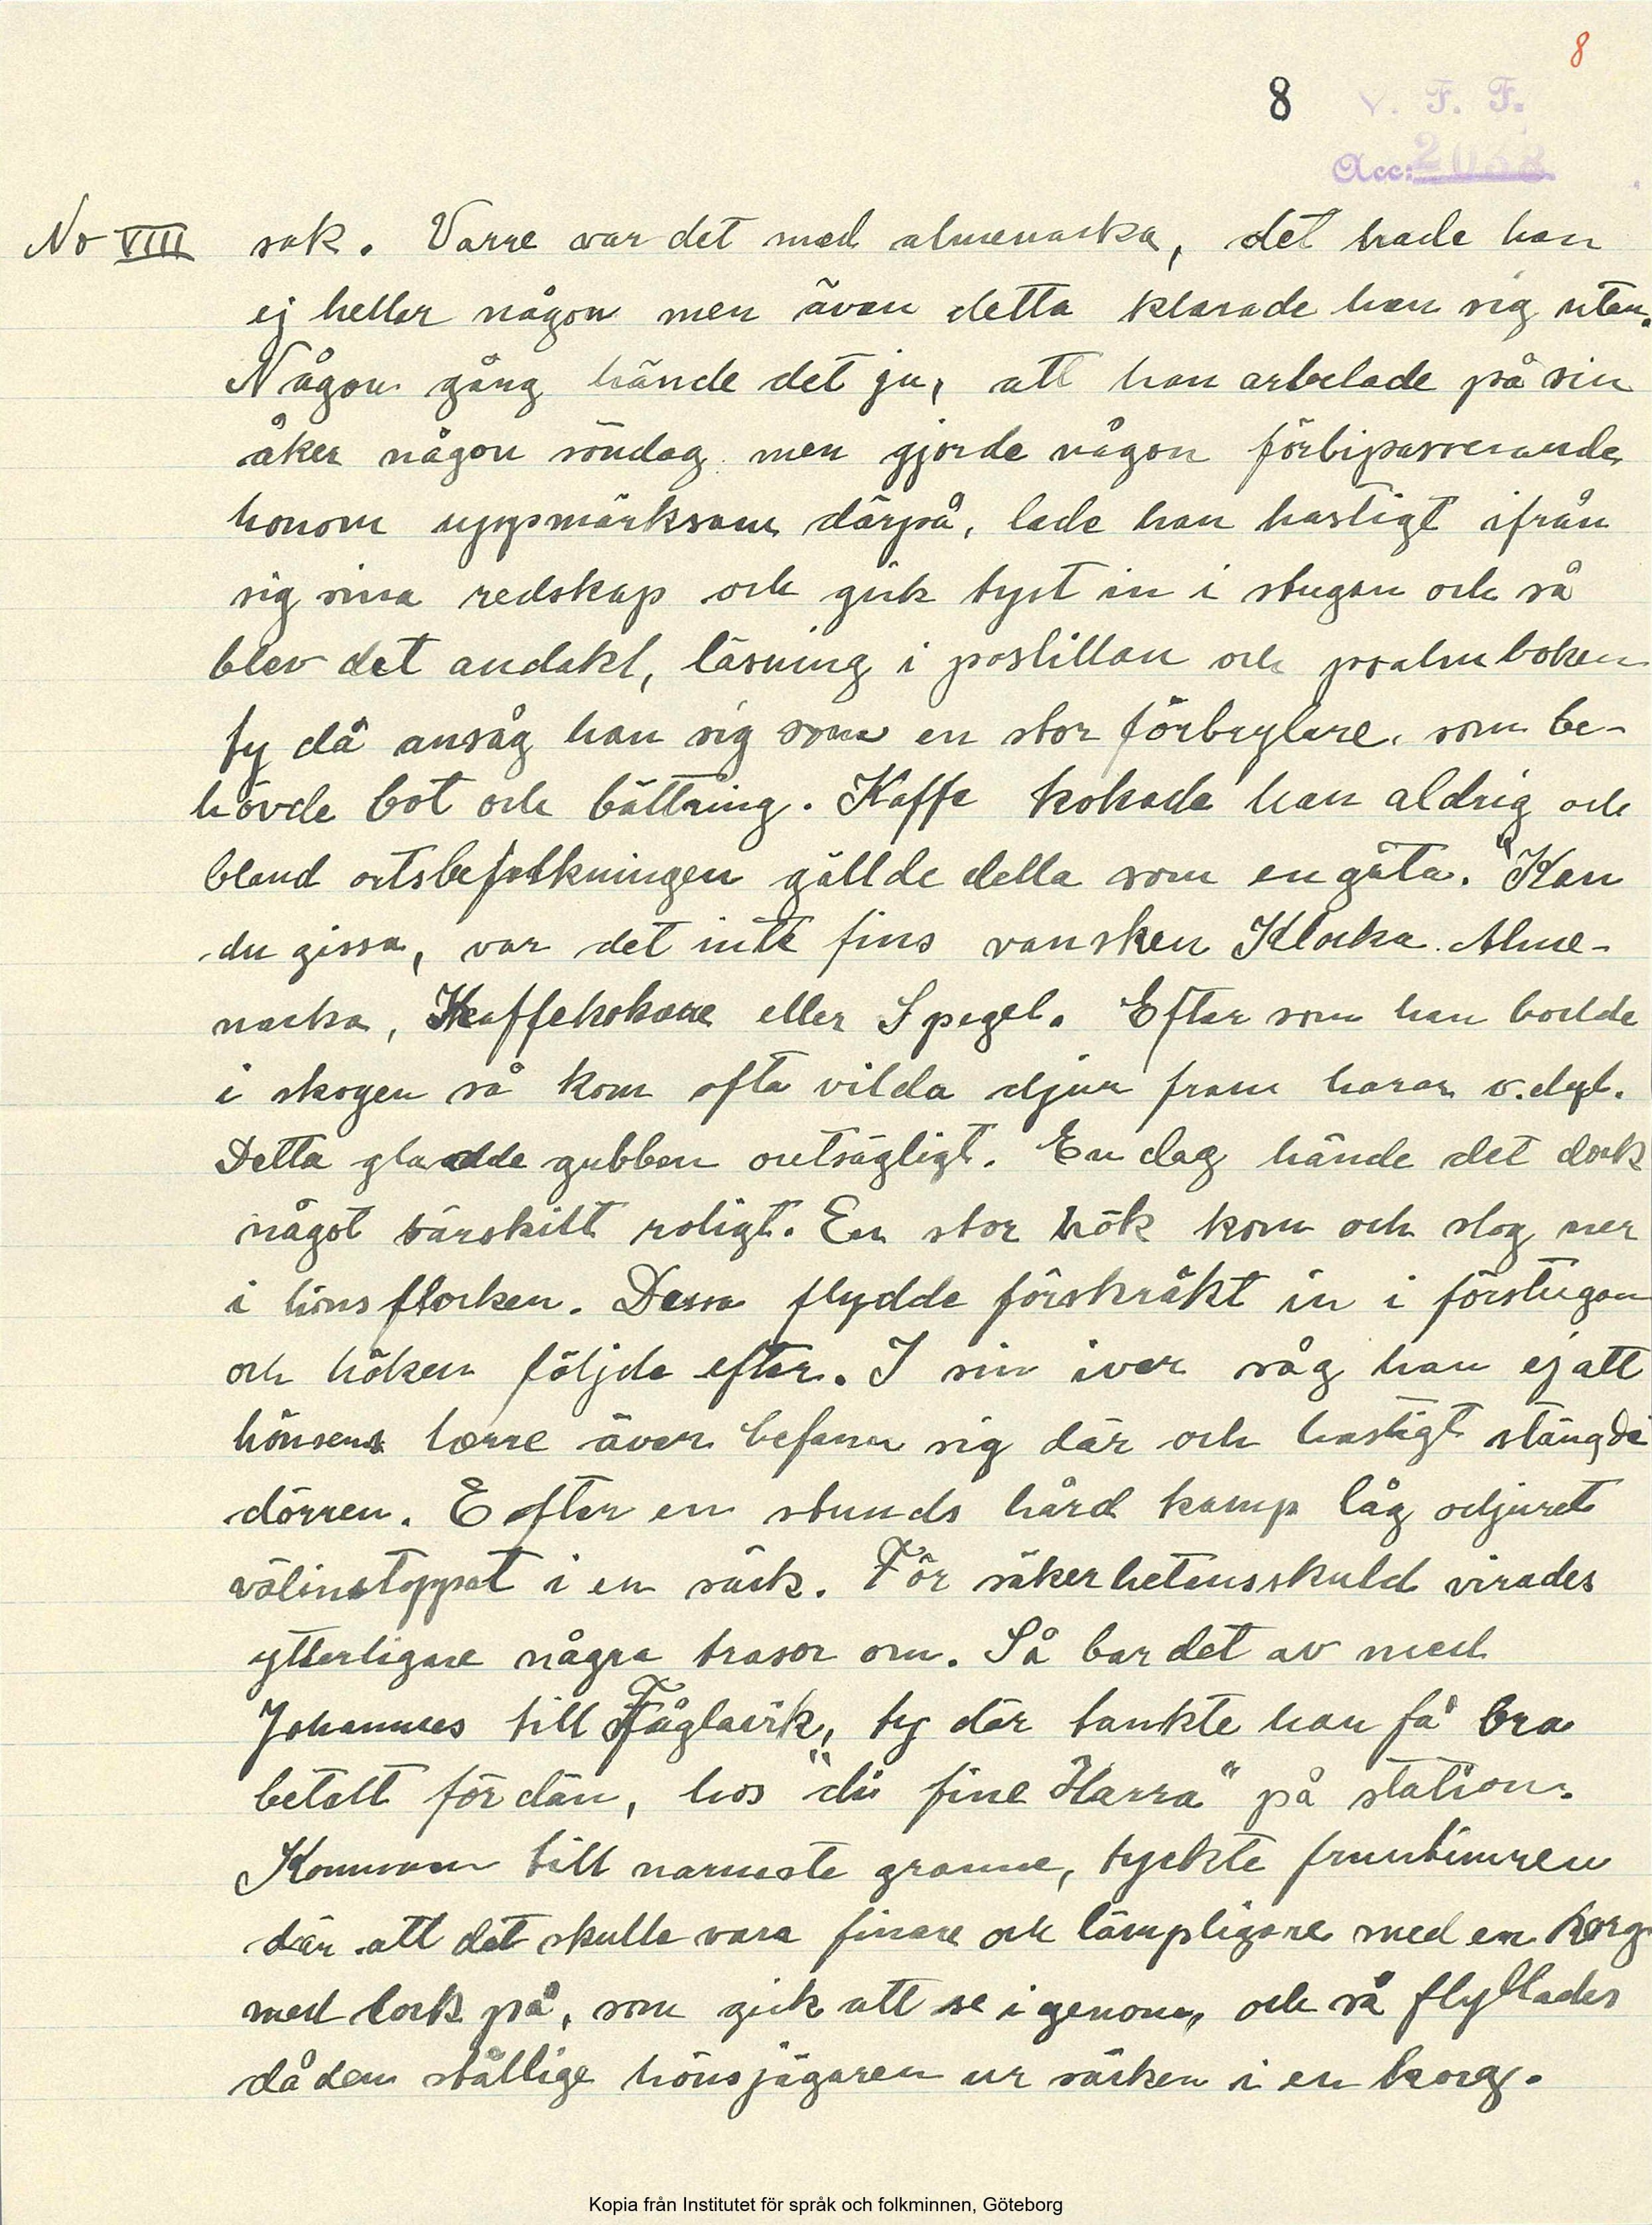 8
8 V. F. F.
Acc: 2033
No VIII sak. Värre var det med almenacka, det hade han
ej heller någon men även detta klarade han sig utan.
Någon gång hände det ju, att han arbetade på sin
åker någon söndag men gjorde någon förbipasserande
honom uppmärksam därpå, lade han hastigt ifrån
sig sina redskap och gick tyst in i stugan och så
blev det andakt, läsning i postillan och psalmboken
ty då ansåg han sig som en stor förbrytare, som be-
hövde bot och bättring. Kaffe kokade han aldrig och
bland ortsbefolkningen gällde detta som en gåta. "Kan
du gissa, var det inte fins vansken Klocka. Alme-
nacka, Kaffekokare eller Spegel. Efter som han bodde
i skogen så kom ofta vilda djur fram harar o.dyl.
Detta gladde gubben outsägligt. En dag hände det dock
något särskilt roligt. En stor hök kom och slog ner
i hönsflocken. Dessa flydde förskräkt in i förstugan
och höken följde efter. I sin iver såg han ej att
hönsens herre även befann sig där och hastigt stängde
dörren. Efter en stunds hård kamp låg odjuret
välinstoppat i en säck. För säkerhetensskuld virades
ytterligare några trasor om. Så bar det av med
Johannes till Fåglavik, ty där tankte han få bra
betalt för dän, hos "di fine Harra" på station.
Kommen till narmste granne, tyckte fruntimren
där att det skulle vara finare och lämpligare med en korg
med lock på, som gick att se igenom, och så flyttades
då den ståtlige hönsjägaren ur säcken i en korg.
Kopia från Institutet för språk och folkminnen, Göteborg